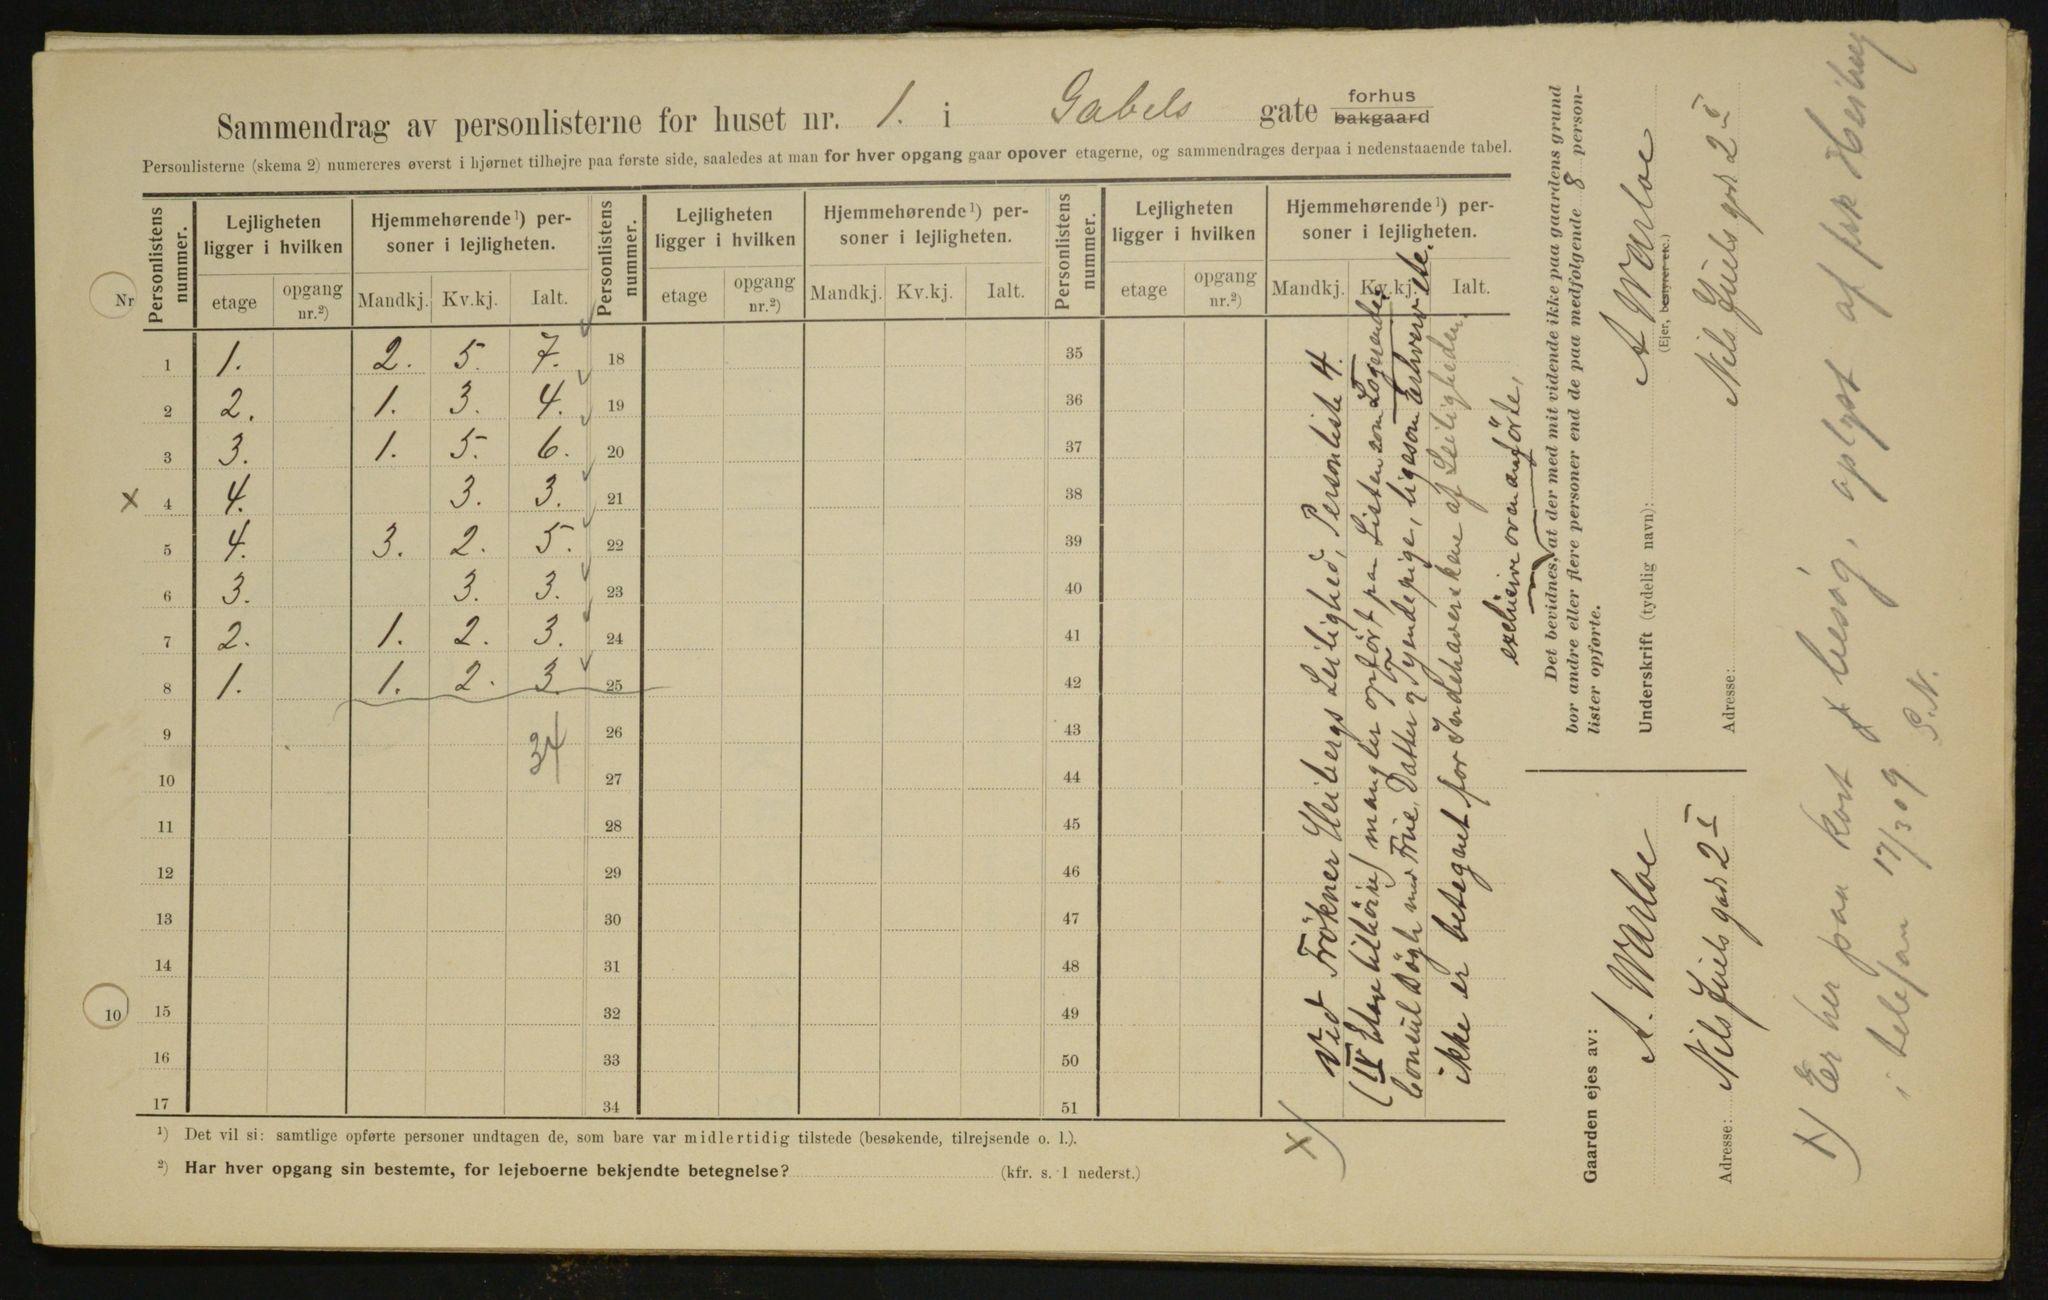 Sammendrag av personlisterne for huset nr. 1. i Gabels gate forhus bakgaard
Personlisterne (skema 2) numereres øverst i hjørnet tilhøjre paa første side, saaledes at man for hver opgang gaar opover etagerne, og sammendrages derpaa i nedenstaaende tabel.
Personlistens nummer. Lejligheten ligger i hvilken Hjemmehørende ¹) personer i lejligheten. Personlistens nummer. Lejligheten ligger i hvilken Hjemmehørende ¹) personer i lejligheten. Personlistens nummer. Lejligheten ligger i hvilken Hjemmehørende ¹) personer i lejligheten.
Nr etage opgang nr.²) Mandkj. Kv.kj. Ialt. etage opgang nr.²) Mandkj. Kv.kj. Ialt. etage opgang nr.²) Mandkj. Kv.kj. Ialt.
1 1. 2. 5. 7. 18 35
2 2. 1. 3. 4. 19 36
3 3. 1. 5. 6. 20 37
x 4 4. 3. 3. 21 38
5 4. 3. 2. 5. 22 39
6 3. 3. 3. 23 40
7 2. 1. 2. 3. 24 41
8 1. 1. 2. 3. 25 42
9 34 26 43
10 27 44
11 28 45
12 29 46
13 30 47
14 31 48
10 15 32 49
16 33 50
17 34 51
¹) Det vil si: samtlige opførte personer undtagen de, som bare var midlertidig tilstede (besøkende, tilrejsende o. l.).
²) Har hver opgang sin bestemte, for lejeboerne bekjendte betegnelse? (kfr. s. 1 nederst.)
x) Ved Frökner Heibergs Leilighed, Personliste 4.
(IV Etage tilhöire) mangler opfört paa Listen som Logerende:
Consul Bögh med Frue, Datter og Tyendepige, ligesom Erhverv
ikke er betegnet for Indehaverskene af Leiligheden.
exclusive ovenanförte,
Det bevidnes, at der med mit vidende ikke paa gaardens grund
bor andre eller flere personer end de paa medfølgende 8 person-
lister opførte.
Underskrift (tydelig navn): A Warloe
(Ejer, bestyrer etc.)
Adresse: Nils Juels gad 2 I
Gaarden ejes av:
A. Warloe
Adresse: Nils Juels gad 2 I
x) Er her paa kort besøg, oplyst af frk Heiberg
i telefon 17/3 09 S.N.